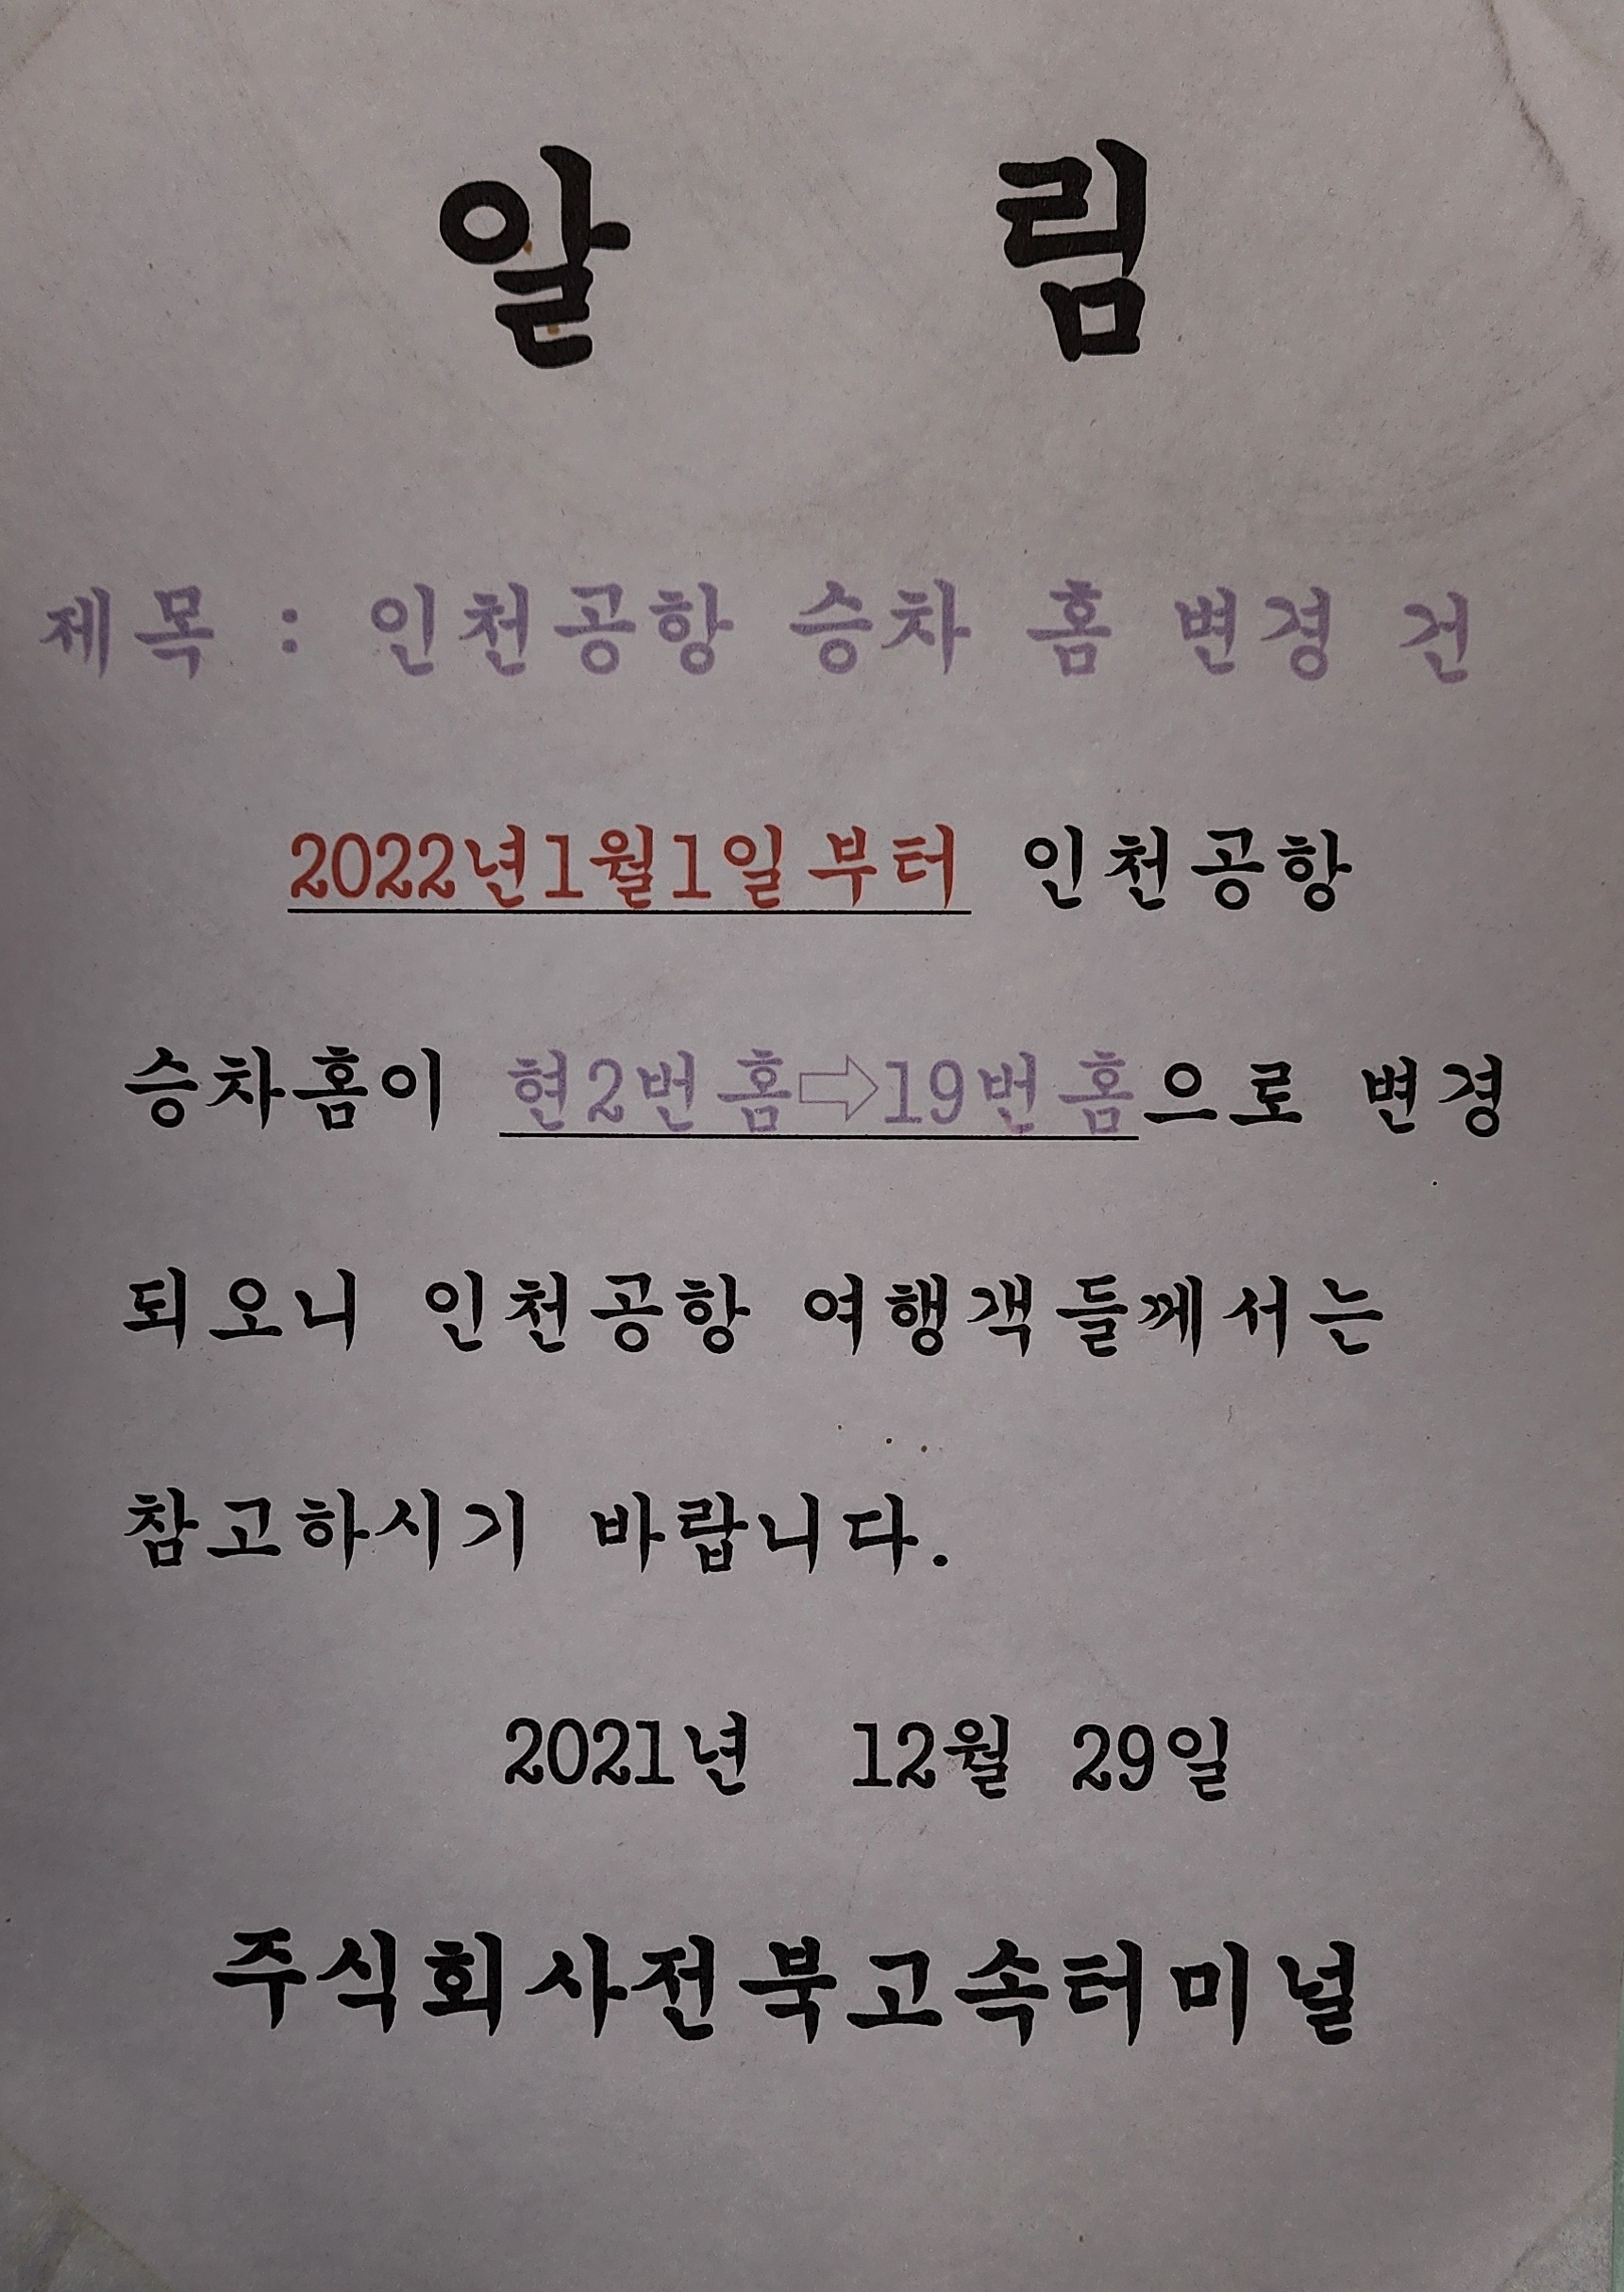 알 림
제목 : 인천공항 승차 홈 변경 건
2022년1월1일부터 인천공항
승차홈이 현2번홈⇨19번홈으로 변경
되오니 인천공항 여행객들께서는
참고하시기 바랍니다.
2021년 12월 29일
주식회사전북고속터미널